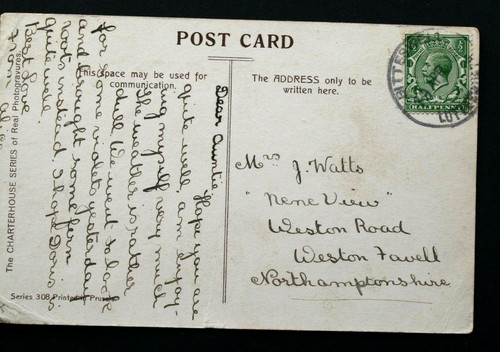 POST CARD
This space may be used for
communication.
The ADDRESS only to be
written here.
HALFPENNY
Dear Auntie, Hope you are
quite well, am enjoy-
ing myself very much
The weather is rather
dull. We went to look
for some violets yesterday
and brought some fern
roots instead. I hope Doris is
quite well.
Best love
From
Mrs J. Watts
"Nene View"
Weston Road
Weston Favell
Northamptonshire
The CHARTERHOUSE SERIES of Real Photogravures.
Series 308 Printed in Prussia